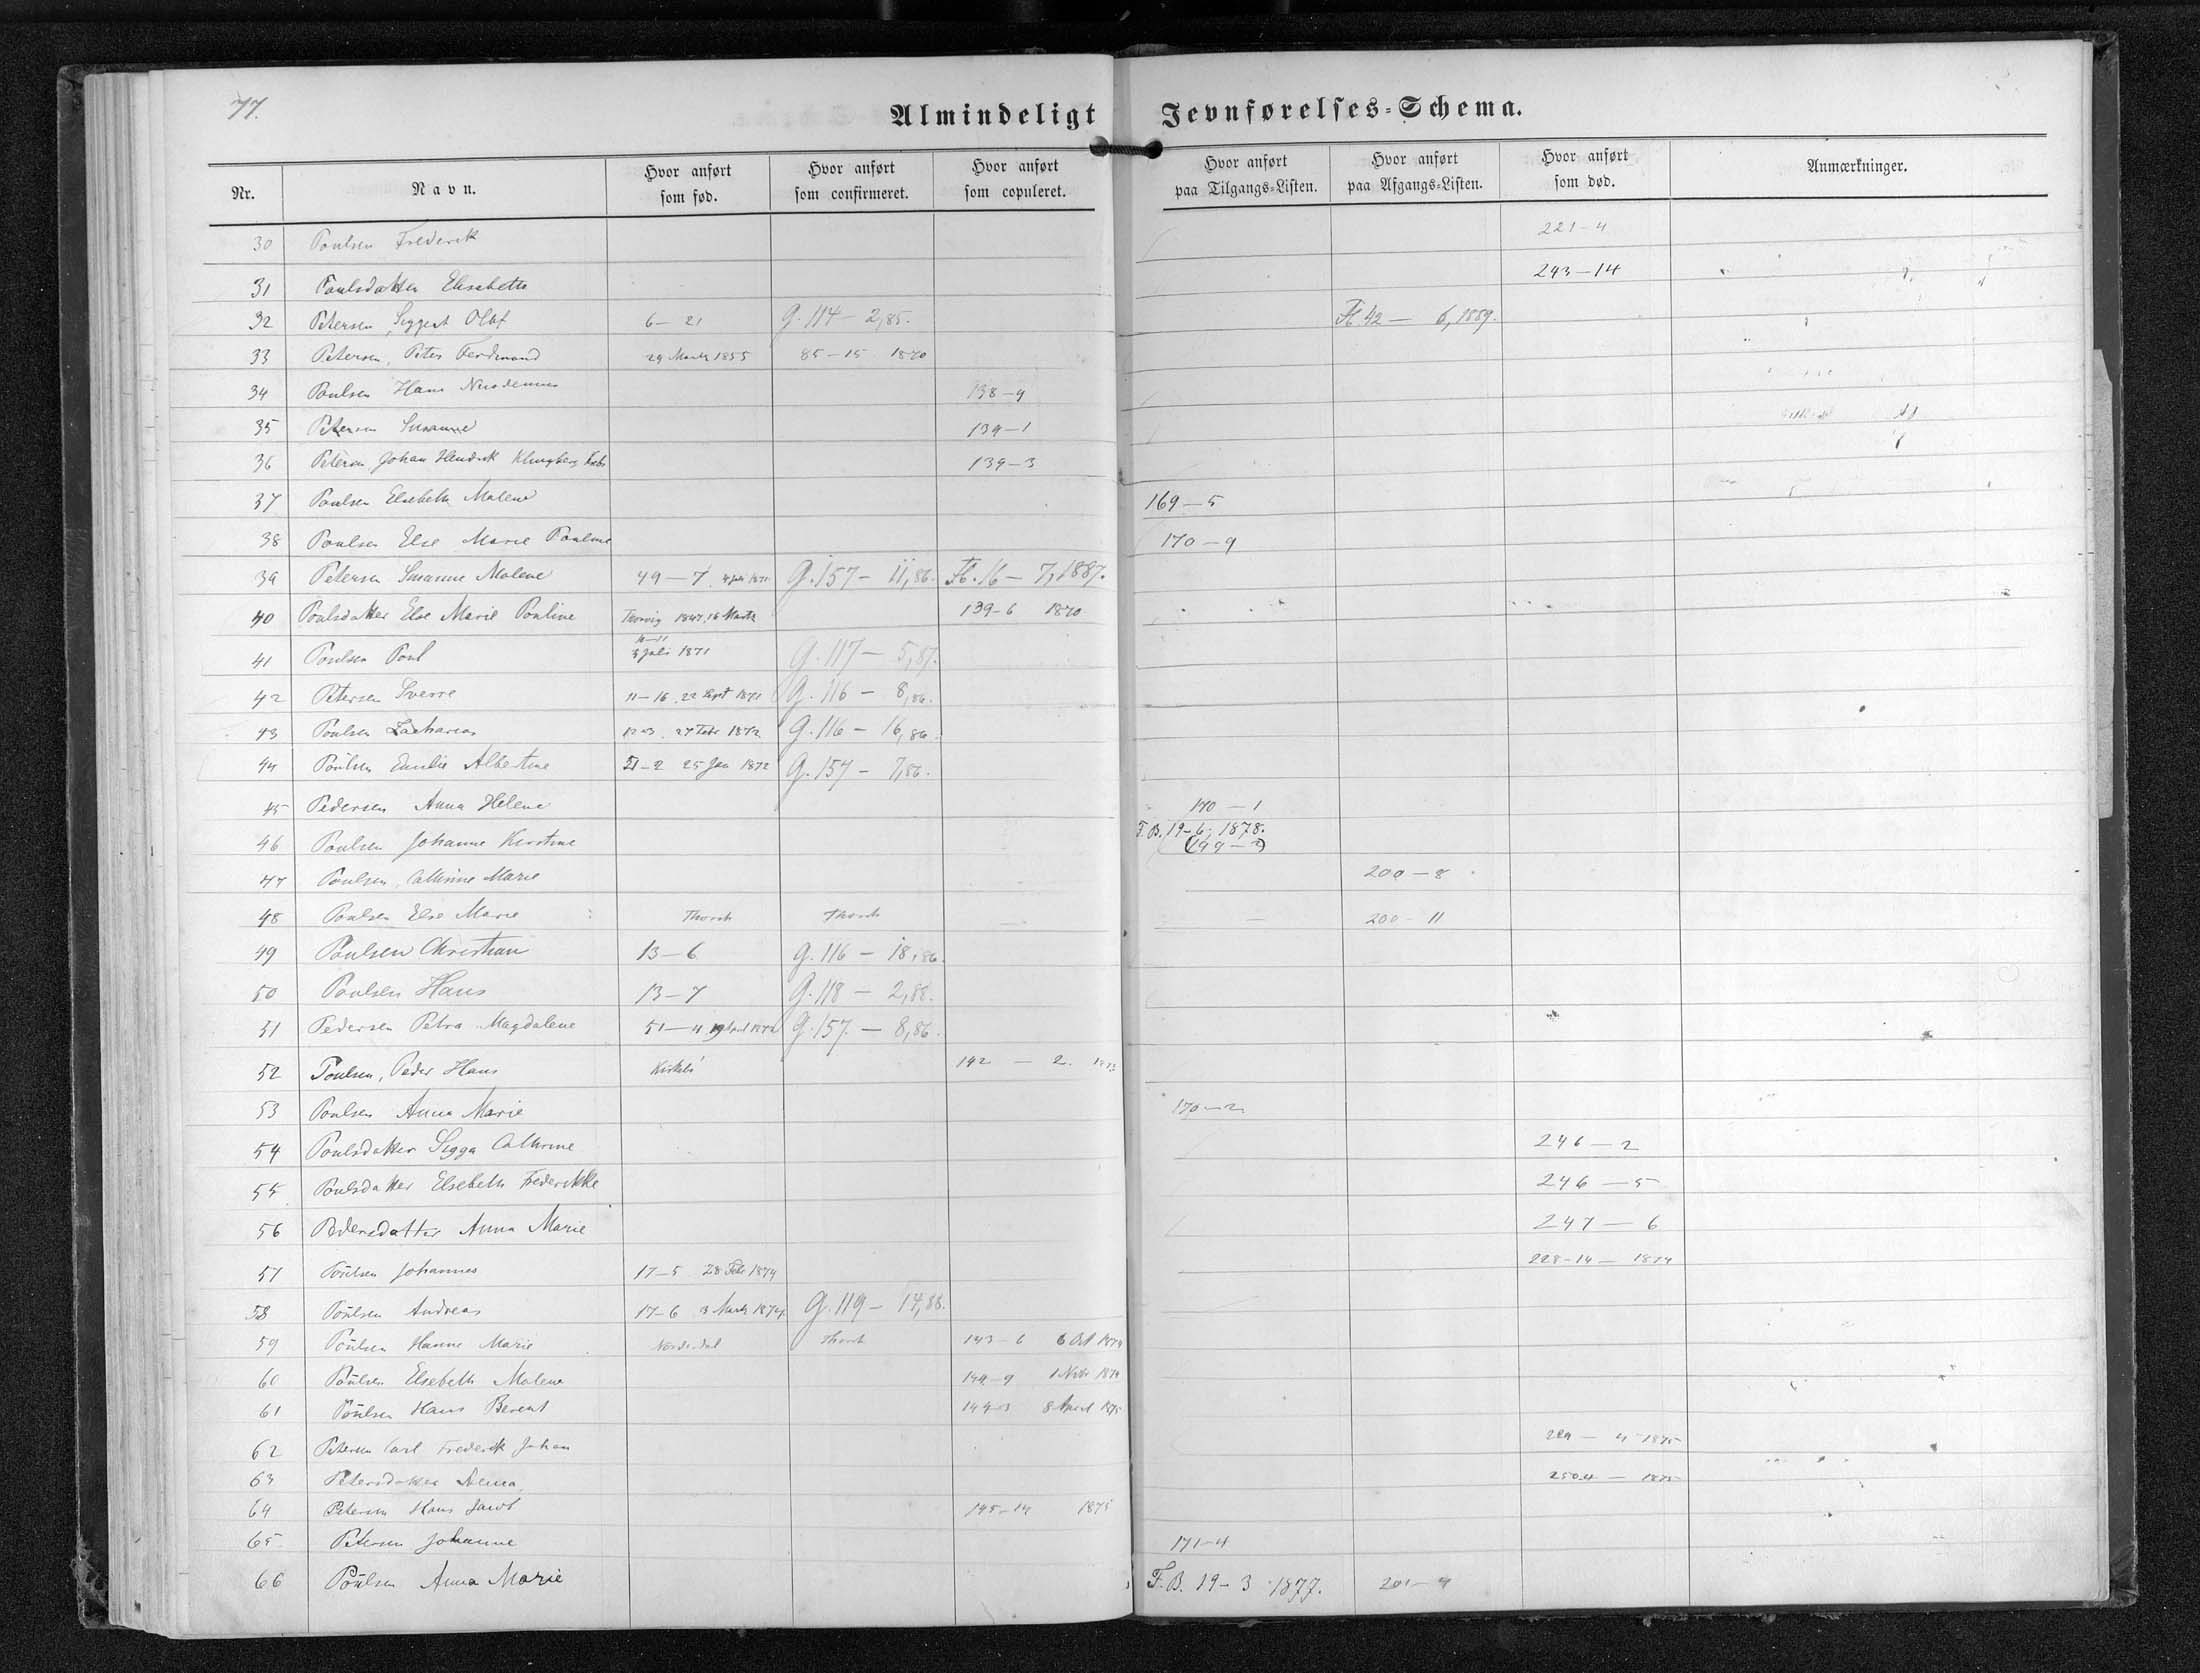 77.
Almindeligt Jevnførelses=Schema.
Nr. Navn. Hvor anført som fød. Hvor anført som confirmeret. Hvor anført som copuleret. Hvor anført paa Tilgangs=Listen. Hvor anført paa Afgangs=Listen. Hvor anført som død. Anmærkninger.
30 Poulsen Frederik 221-4
31 Poulsdatter Elisabeth 243-14
32 Petersen, Siggert Olaf 6-21 G. 114-2,85. Fl. 42 - 6, 1889.
33 Petersen, Peter Ferdinand 29 Marts 1855 85-15 1870
34 Poulsen Hans Nicodemus 138-9
35 Petersen Susanne 139-1
36 Petersen Johan Hendrik Klingberg 139-3
37 Poulsen Elsebeth Malene 169-5
38 Poulsen Else Marie Pauline 170-9
39 Petersen Susanne Malene 49-7. 4 Juli 1871 G. 157-11,86. Fl. 16-7, 1887.
40 Poulsdatter Else Marie Pouline 1847, 16 Marts 139-6 1870
41 Poulsen Poul 10-11 3 Juli 1871 G. 117-5,87.
42 Petersen Sverre 11-16. 22 Sept 1871 G. 116-8,86.
43 Poulsen Zacharias 12-3. 27 Febr 1872 G. 116-16,86.
44 Poulsen Emilie Albertine 51-2 25 Jan 1872 G. 157-7,86.
45 Pedersen Anna Helene 170-1
46 Poulsen Johanne Kirstine F.B. 19-6, 1878. (199-2)
47 Poulsen, Cathrine Marie 200-8
48 Poulsen Else Marie Thorsh Thorsh - 200-11
49 Poulsen Christian 13-6 G. 116-18,86.
50 Poulsen Hans 13-7 G. 118-2,88.
51 Pedersen Petra Magdalene 51-11 19 April 1872 G. 157-8,86.
52 Poulsen, Peder Hans 142-2. 1873
53 Poulsen Anna Marie 170-2
54 Poulsdatter Sigga Cathrine 246-2
55 Poulsdatter Elsebeth Frederikke 246-5
56 Pedersdatter Anna Marie 247-6
57 Poulsen Johannes 17-5 28 Febr 1874 228-14-1874
58 Poulsen Andreas 17-6 3 Marts 1874 G. 119-14,88.
59 Poulsen Hanne Marie Norderdal Thorsh 143-6 6 Oct 1874
60 Poulsen Elsebeth Malene 144-9 1 Novbr 1874
61 Poulsen Hans Berent 144-3 8 April 1875
62 Petersen Carl Frederik Johan 229-4 1875
63 Petersdatter Anna 250-4-1875
64 Petersen Hans Jacob 145-14 1875
65 Petersen Johanne 171-4
66 Poulsen Anna Marie F.B. 19-3 1877. 201-9